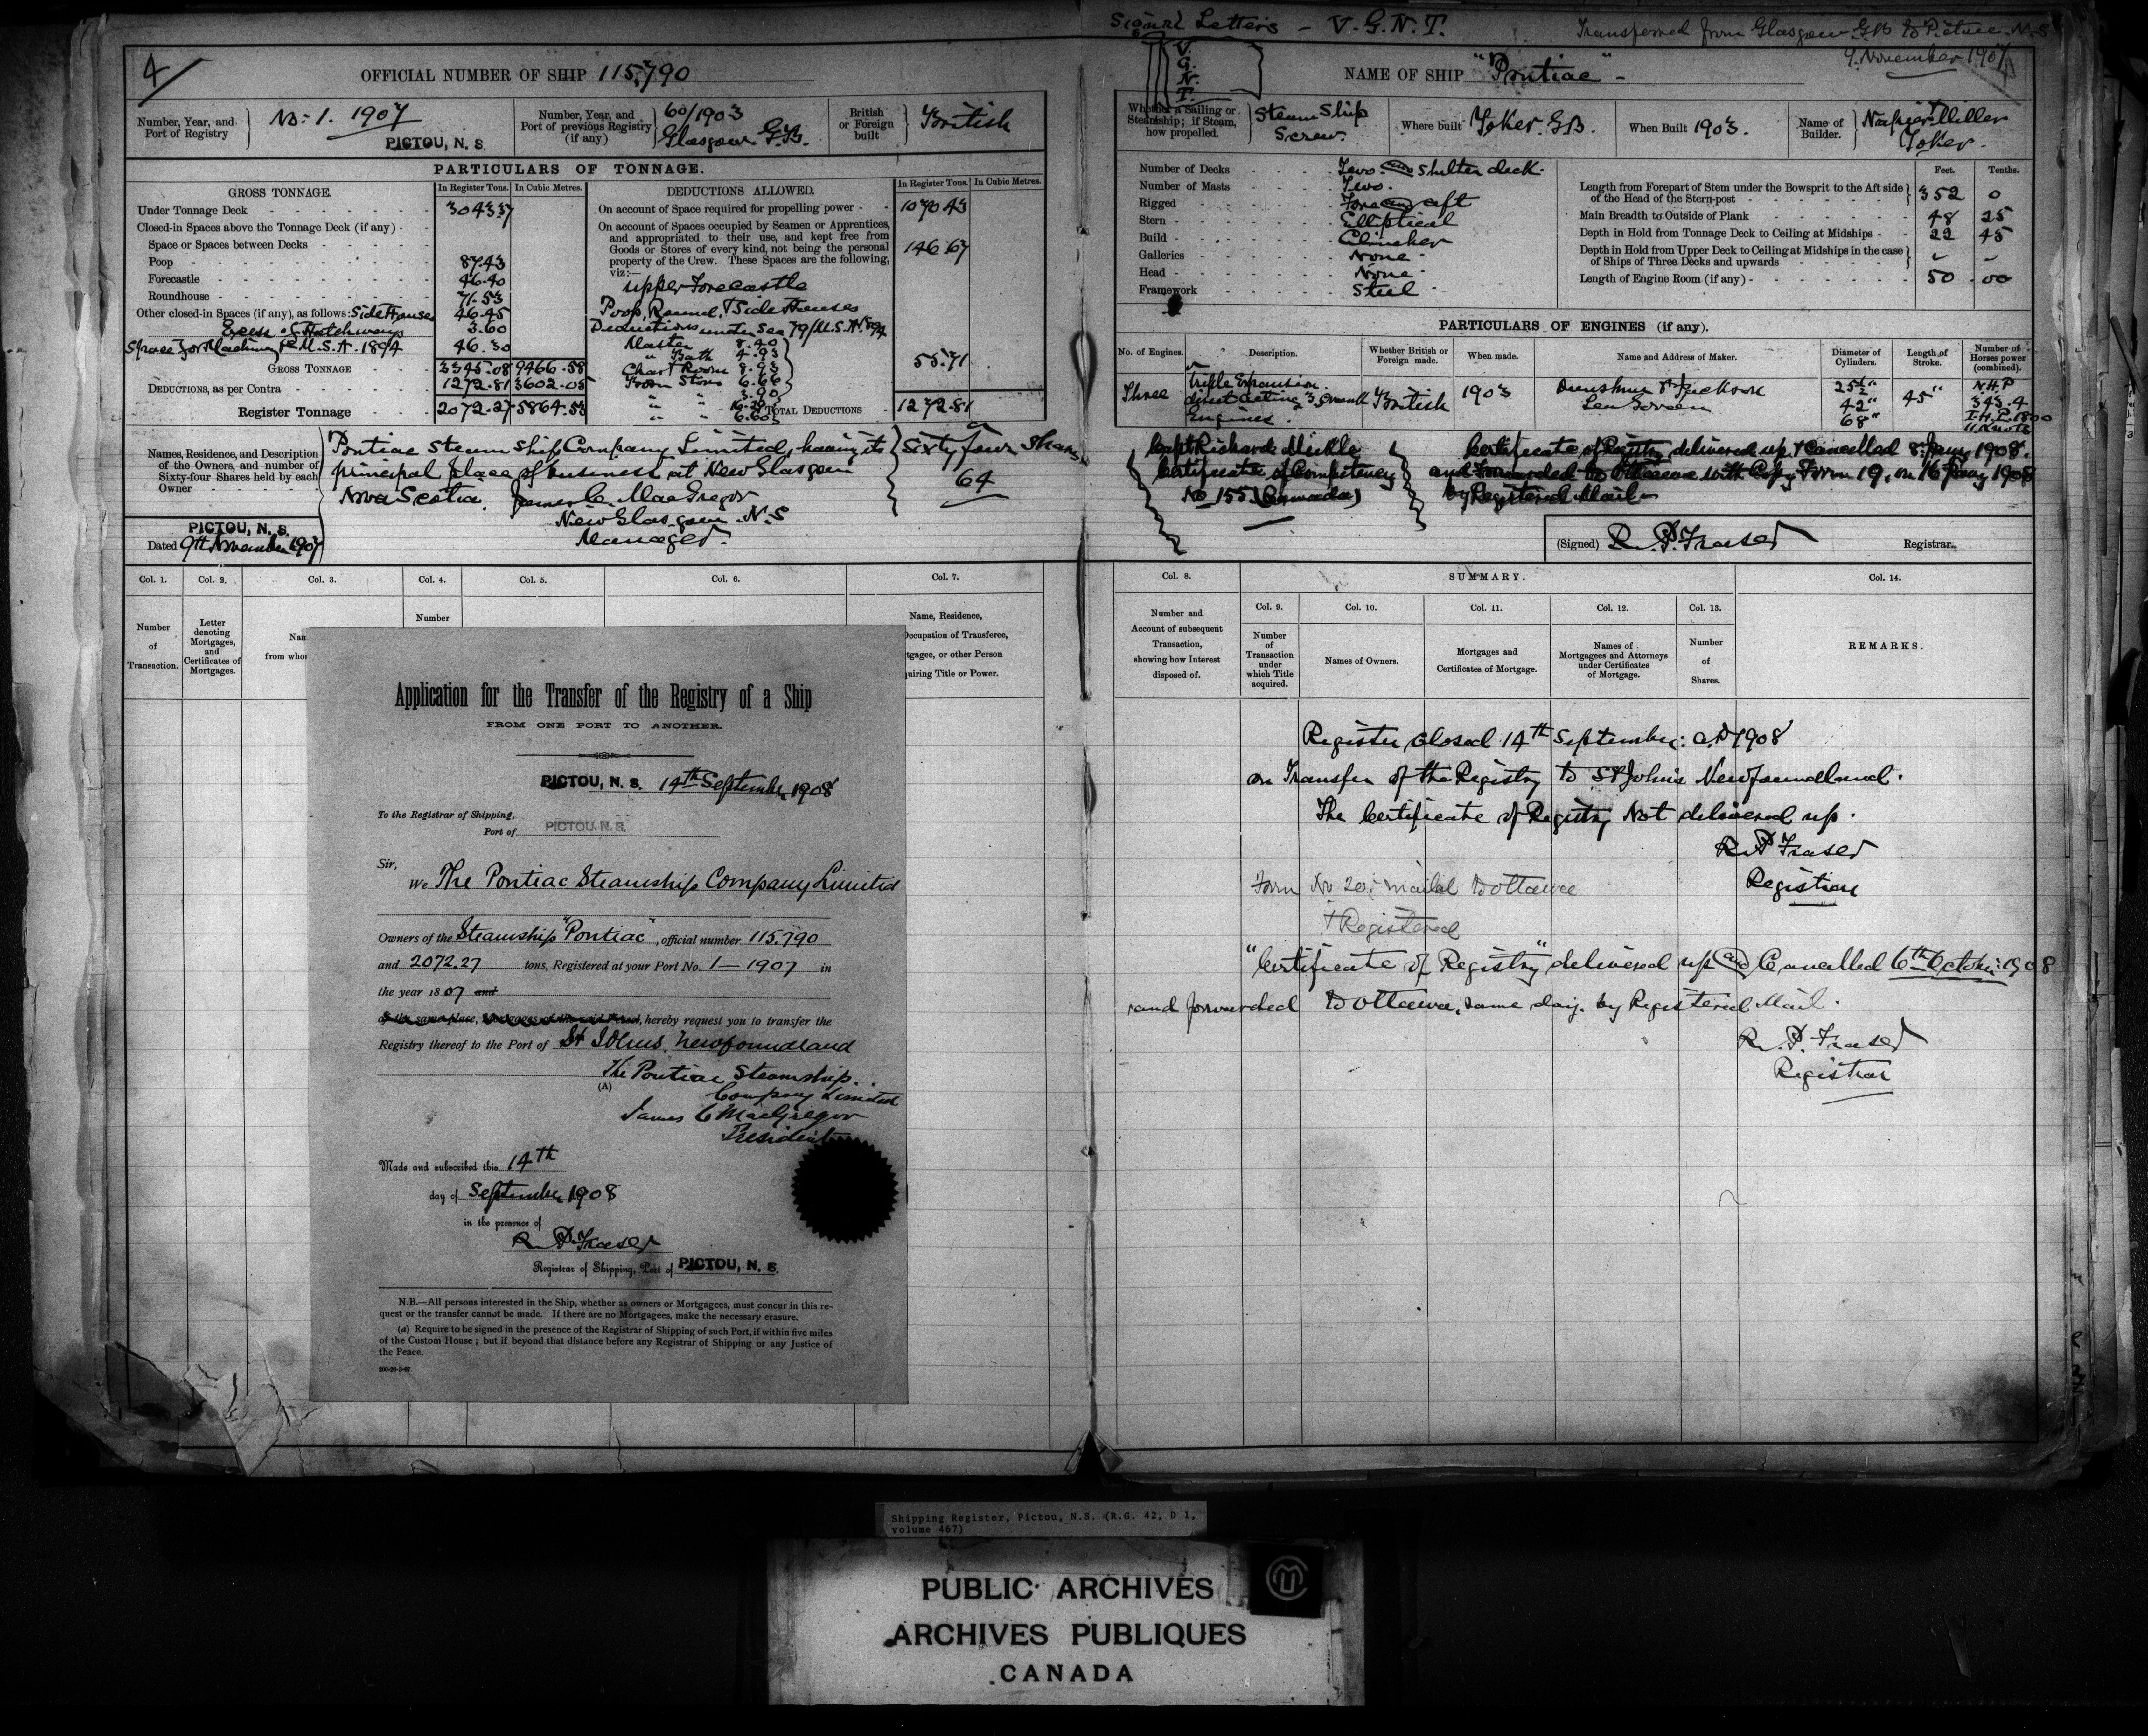 Signal Letters - V.G.N.T.
Transferred from Glasgow G.B to Pictou N.S
9. November 1907
4
OFFICIAL NUMBER OF SHIP 115,790
V.
G.
N.
T.
NAME OF SHIP "Pontiac"
Number, Year, and Port of Registry } No: 1. 1907
PICTOU, N. S.
Number, Year, and Port of previous Registry (if any) } 60/1903 Glasgow G.B.
British or Foreign built } British
Whether a Sailing or Steamship; if Steam, how propelled. } Steam Ship Screw.
Where built Yoker G.B.
When Built 1903.
Name of Builder. } Napier & Miller Yoker.
PARTICULARS OF TONNAGE.
GROSS TONNAGE.
In Register Tons. In Cubic Metres.
Under Tonnage Deck 3043 37
Closed-in Spaces above the Tonnage Deck (if any)
Space or Spaces between Decks
Poop 87.43
Forecastle 46.40
Roundhouse 71.53
Other closed-in Spaces (if any), as follows: Side Houses 46.45
Excess of Hatchways 3.60
Space for Machinery M.S.A. 1894 46.30
GROSS TONNAGE 3345.08 9466.58
DEDUCTIONS, as per Contra 1272.81 3602.05
Register Tonnage 2072.27 5864.53
DEDUCTIONS ALLOWED.
In Register Tons. In Cubic Metres.
On account of Space required for propelling power 1070 43
On account of Spaces occupied by Seamen or Apprentices,
and appropriated to their use, and kept free from
Goods or Stores of every kind, not being the personal
property of the Crew. These Spaces are the following,
viz:— 146 67
upper Forecastle
Poop, Round, & Side Houses
Deductions under Sec 79/M.S.A. 1894
Master 8.40
" Bath 4.93
Chart Room 8.93
Boson Stores 6.66
" " 3.90
" "
" " 6.60
55.71
TOTAL DEDUCTIONS 1272.81
Number of Decks Two and shelter deck.
Number of Masts Two.
Rigged Fore and aft
Stern Elliptical
Build Clincher
Galleries None
Head None
Framework Steel
Feet. Tenths.
Length from Forepart of Stem under the Bowsprit to the Aft side of the Head of the Stern-post } 352 0
Main Breadth to Outside of Plank 48 25
Depth in Hold from Tonnage Deck to Ceiling at Midships 22 45
Depth in Hold from Upper Deck to Ceiling at Midships in the case of Ships of Three Decks and upwards } - -
Length of Engine Room (if any) 50 .00
PARTICULARS OF ENGINES (if any).
No. of Engines.
Description.
Whether British or Foreign made.
When made.
Name and Address of Maker.
Diameter of Cylinders.
Length of Stroke.
Number of Horses power (combined).
Three
Triple Expansion direct acting 3 Crank Engines.
British
1903
Dunsmuir & Jackson
Govan
25½"
42"
68"
45"
N.H.P
343.4
I.H.P. 1800
11 Knots
Names, Residence, and Description of the Owners, and number of Sixty-four Shares held by each Owner
Pontiac Steam Ship Company Limited, having its
principal place of business at New Glasgow
Nova Scotia. James C. MacGregor
New Glasgow N.S
Manager.
Sixty four Shares
64
PICTOU, N. S.
Dated 9th November 1907
Capt Richard Mickle
Certificate of Competency
No 155 (Canada)
Certificate of Registry delivered up & Cancelled 8. Jany 1908.
and Forwarded to Ottawa with Copy Form 19, on 16 Jany 1908
by Registered Mail
(Signed) R. P. Fraser Registrar.
Col. 1. Col. 2. Col. 3. Col. 4. Col. 5. Col. 6. Col. 7.
Number of Transaction.
Letter denoting Mortgages, and Certificates of Mortgages.
Nam
from whom
Number
Name, Residence,
Occupation of Transferee,
rtgagee, or other Person
quiring Title or Power.
Col. 8. SUMMARY. Col. 14.
Col. 9. Col. 10. Col. 11. Col. 12. Col. 13.
Number and Account of subsequent Transaction, showing how Interest disposed of.
Number of Transaction under which Title acquired.
Names of Owners.
Mortgages and Certificates of Mortgage.
Names of Mortgagees and Attorneys under Certificates of Mortgage.
Number of Shares.
REMARKS.
Application for the Transfer of the Registry of a Ship
FROM ONE PORT TO ANOTHER.
PICTOU, N. S. 14th September 1908
To the Registrar of Shipping,
Port of PICTOU, N. S.
Sir,
We The Pontiac Steamship Company Limited
Owners of the Steamship "Pontiac", official number 115,790
and 2072.27 tons, Registered at your Port No. 1 — 1907 in
the year 1807 and
of the same place, Mortgagees of the said Vessel, hereby request you to transfer the
Registry thereof to the Port of St Johns, Newfoundland
The Pontiac Steamship
(A) Company Limited
James C MacGregor
President
Made and subscribed this 14th
day of September 1908
in the presence of
R. P. Fraser
Registrar of Shipping, Port of PICTOU, N. S.
N.B.—All persons interested in the Ship, whether as owners or Mortgagees, must concur in this re-
quest or the transfer cannot be made. If there are no Mortgagees, make the necessary erasure.
(a) Require to be signed in the presence of the Registrar of Shipping of such Port, if within five miles
of the Custom House; but if beyond that distance before any Registrar of Shipping or any Justice of
the Peace.
200-28-5-97.
Register Closed 14th September: A.D 1908
on Transfer of the Registry to St John's Newfoundland.
The Certificate of Registry Not delivered up.
R. P Fraser
Registrar
Form No 20. mailed to Ottawa
& Registered
"Certificate of Registry" delivered up and Cancelled 6th October: 1908
and forwarded to Ottawa, same day. by Registered Mail.
R. P. Fraser
Registrar
Shipping Register, Pictou, N.S. (R.G. 42, D 1,
volume 467)
PUBLIC ARCHIVES
ARCHIVES PUBLIQUES
CANADA